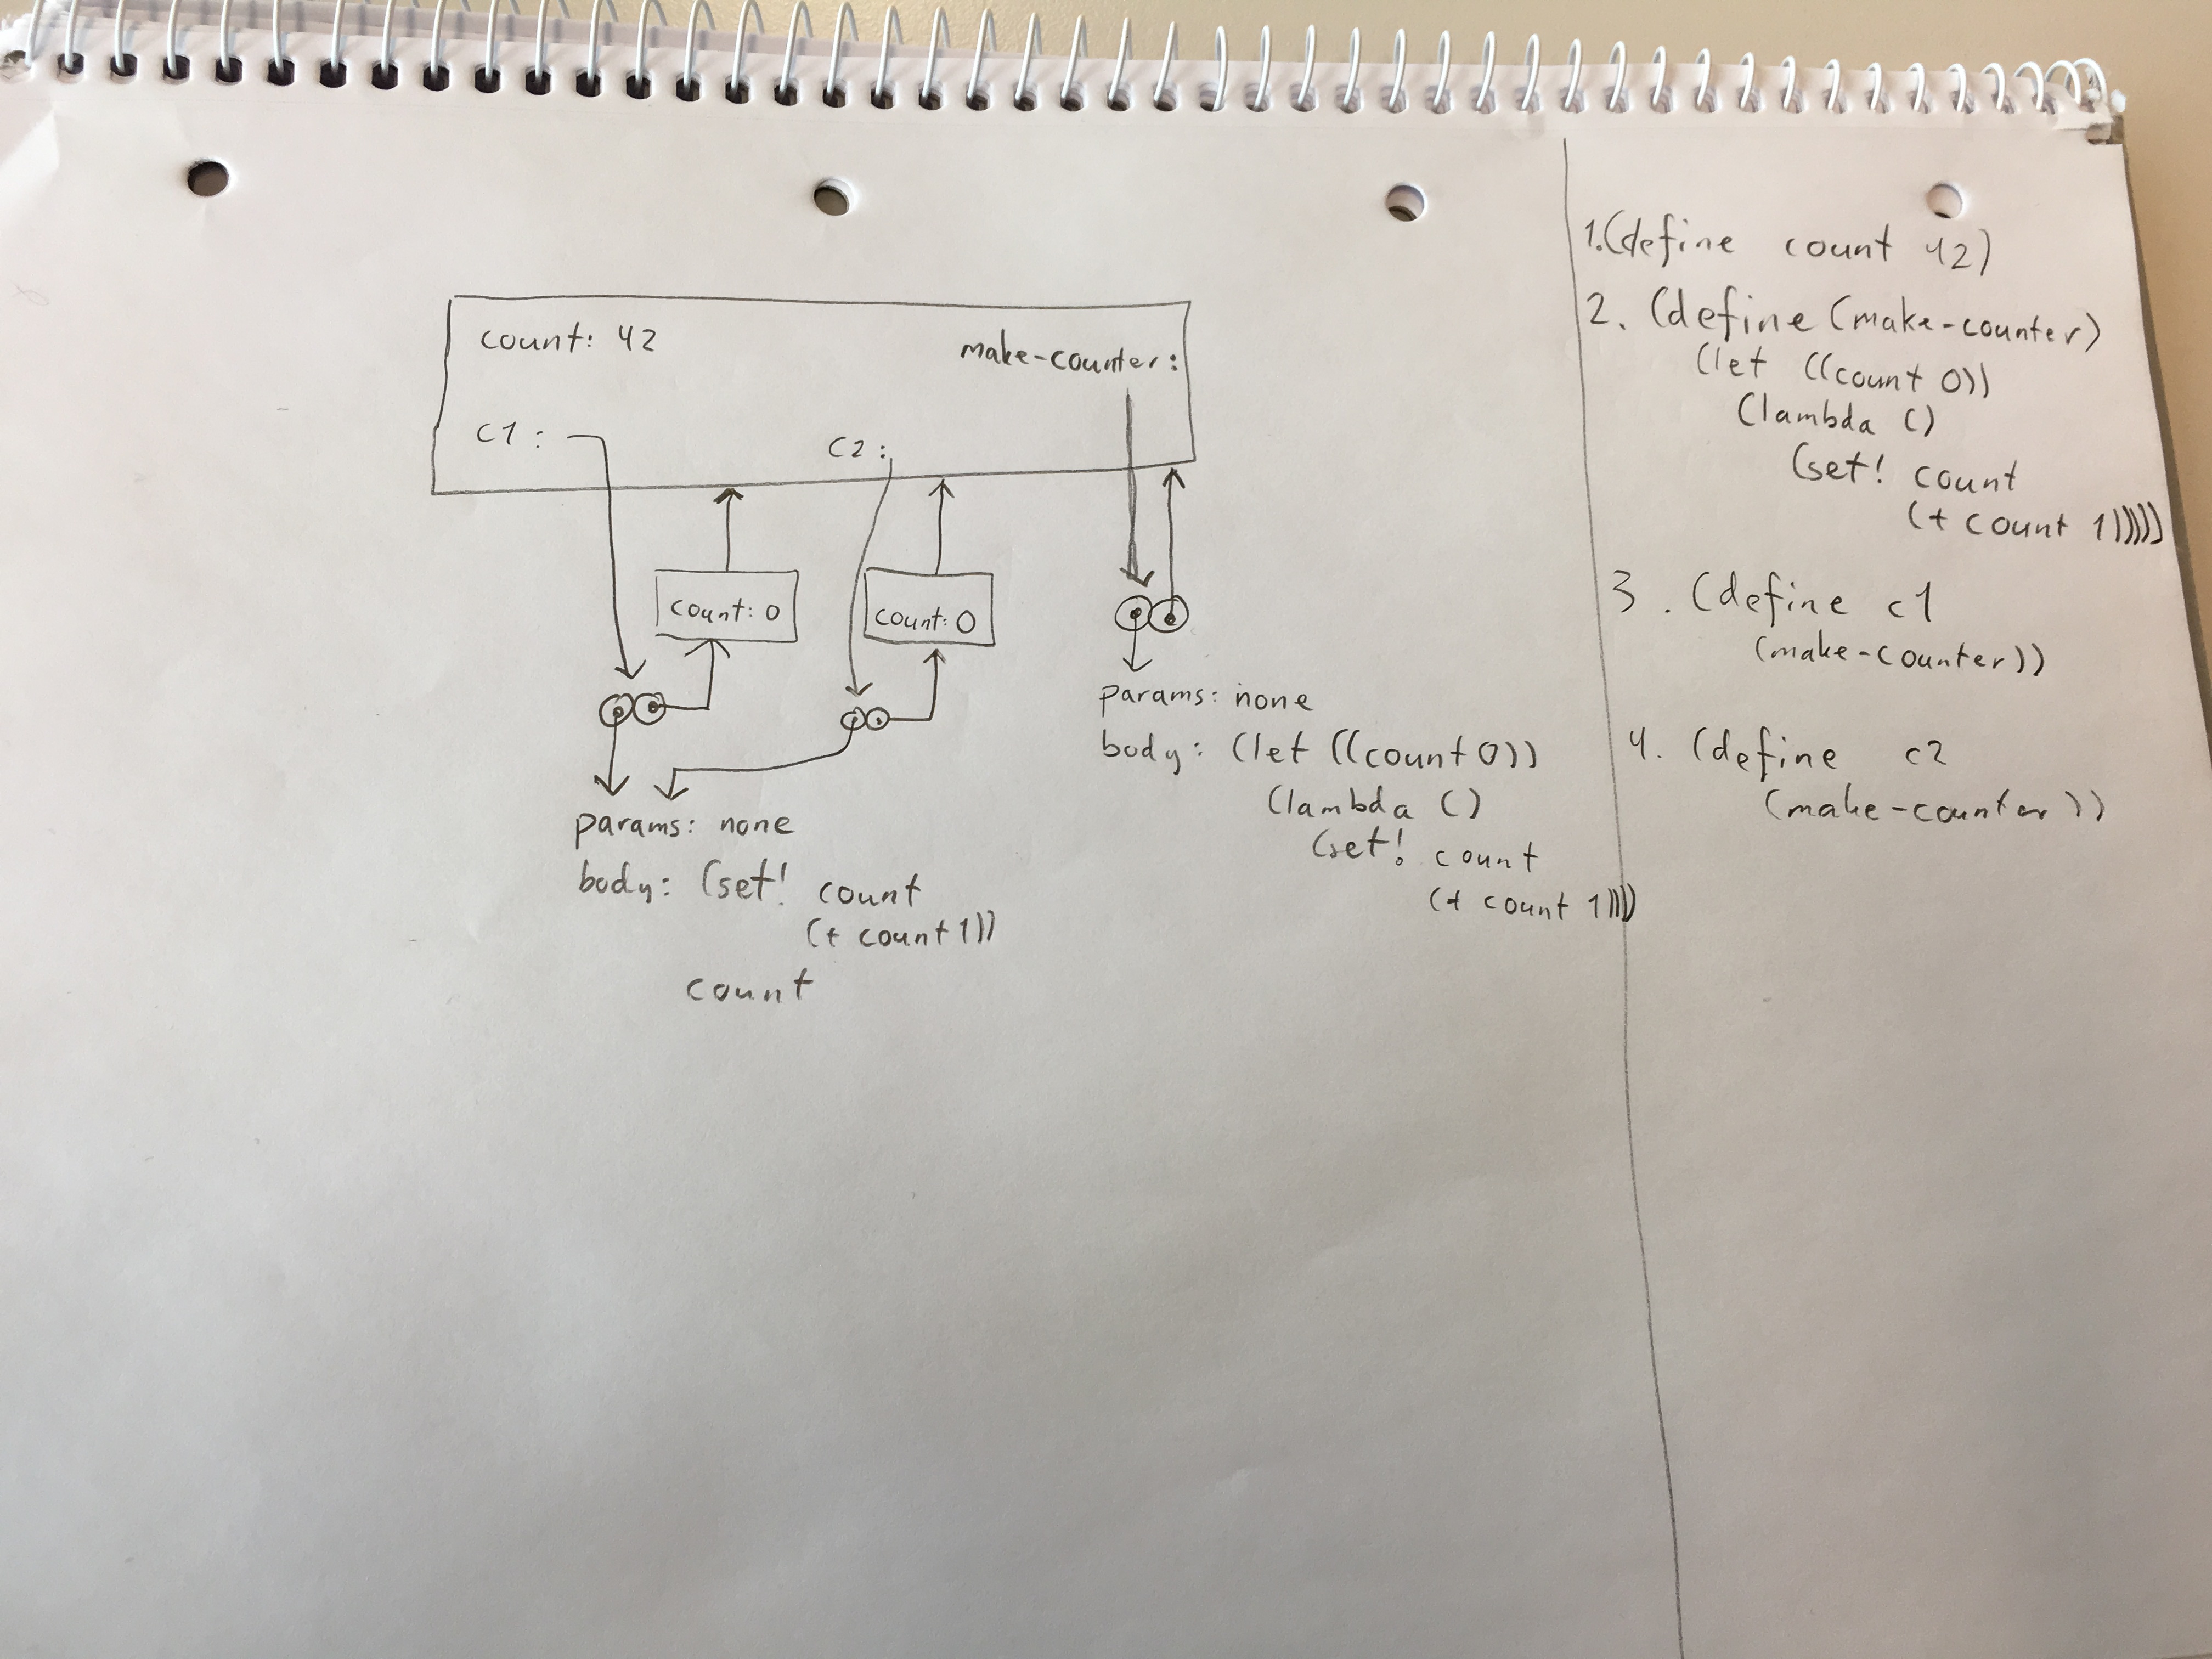 count: 42
make-counter:
c1:
c2:
count: 0
count: 0
params: none
body: (set! count
(+ count 1))
count
params: none
body: (let ((count 0))
(lambda ()
(set! count
(+ count 1))))
1.(define count 42)
2. (define (make-counter)
(let ((count 0))
(lambda ()
(set! count
(+ count 1)))))
3. (define c1
(make-counter))
4. (define c2
(make-counter))